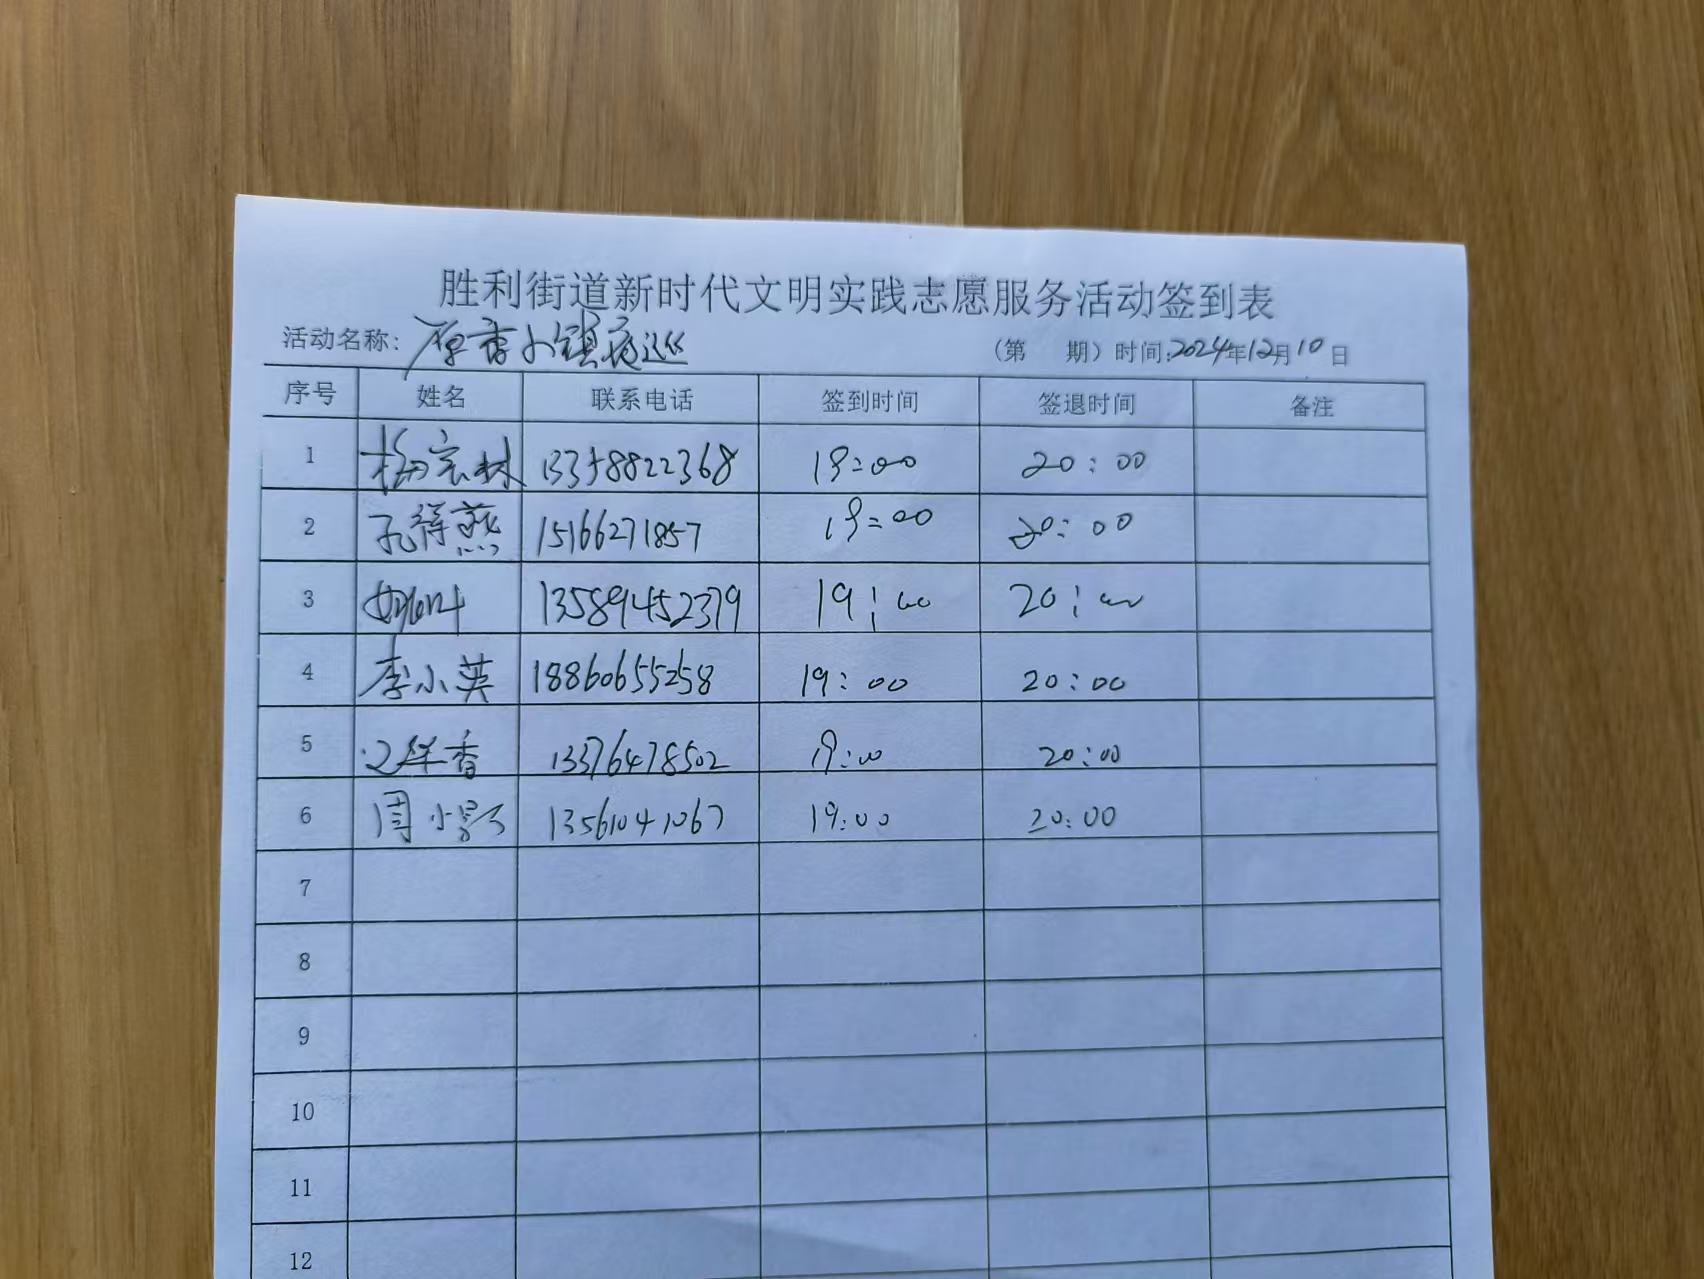 胜利街道新时代文明实践志愿服务活动签到表
活动名称: 原香小镇夜巡 (第 期) 时间:2024年12月10日
序号 姓名 联系电话 签到时间 签退时间 备注
1 杨宏林 13358822368 19:00 20:00
2 孔得燕 15166271857 19:00 20:00
3 13589452379 19:00 20:00
4 李小英 18860655258 19:00 20:00
5 香 13376478502 19:00 20:00
6 周小影 13561041067 19:00 20:00
7
8
9
10
11
12